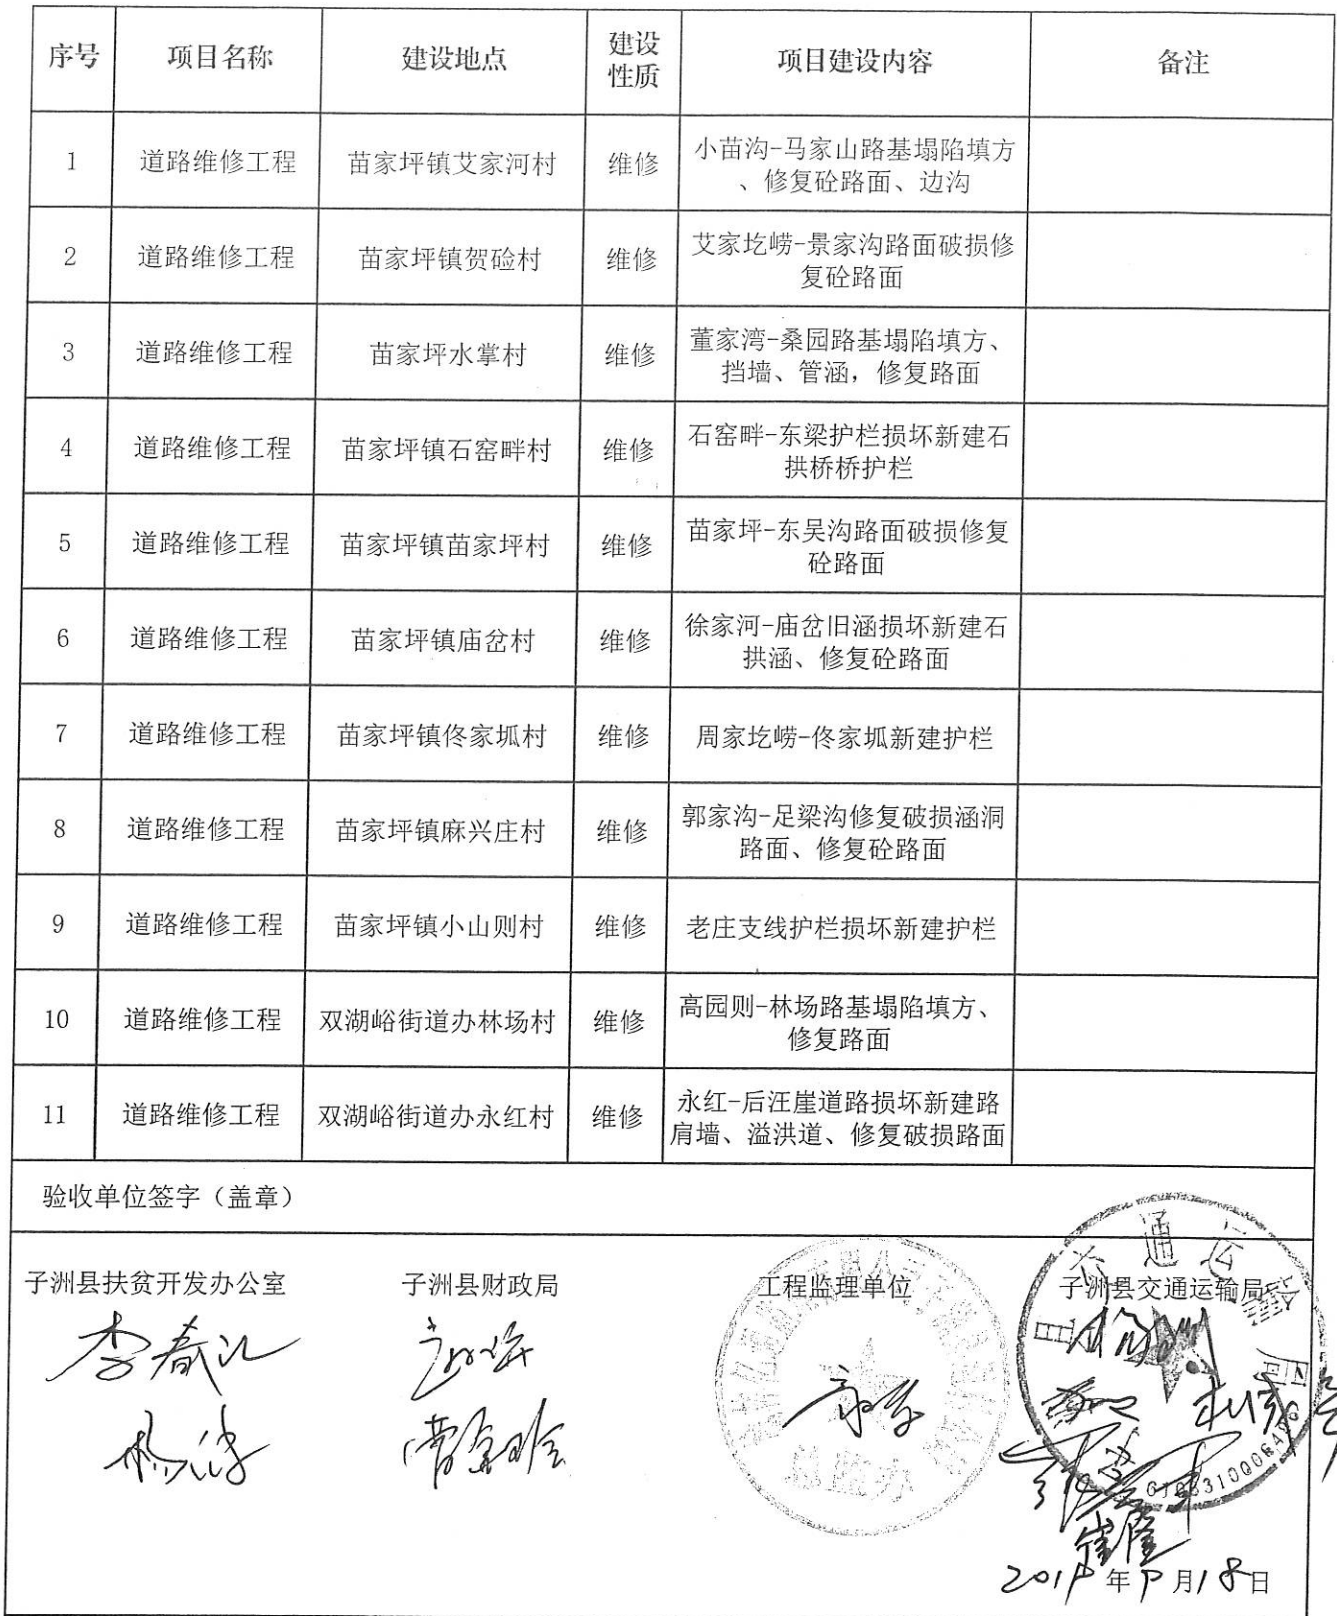 序号 项目名称 建设地点 建设性质 项目建设内容 备注
1 道路维修工程 苗家坪镇艾家河村 维修 小苗沟-马家山路基塌陷填方
、修复砼路面、边沟
2 道路维修工程 苗家坪镇贺硷村 维修 艾家圪崂-景家沟路面破损修
复砼路面
3 道路维修工程 苗家坪水掌村 维修 董家湾-桑园路基塌陷填方、
挡墙、管涵，修复路面
4 道路维修工程 苗家坪镇石窑畔村 维修 石窑畔-东梁护栏损坏新建石
拱桥桥护栏
5 道路维修工程 苗家坪镇苗家坪村 维修 苗家坪-东吴沟路面破损修复
砼路面
6 道路维修工程 苗家坪镇庙岔村 维修 徐家河-庙岔旧涵损坏新建石
拱涵、修复砼路面
7 道路维修工程 苗家坪镇佟家坬村 维修 周家圪崂-佟家坬新建护栏
8 道路维修工程 苗家坪镇麻兴庄村 维修 郭家沟-足梁沟修复破损涵洞
路面、修复砼路面
9 道路维修工程 苗家坪镇小山则村 维修 老庄支线护栏损坏新建护栏
10 道路维修工程 双湖峪街道办林场村 维修 高园则-林场路基塌陷填方、
修复路面
11 道路维修工程 双湖峪街道办永红村 维修 永红-后汪崖道路损坏新建路
肩墙、溢洪道、修复破损路面
验收单位签字（盖章）
子洲县扶贫开发办公室 子洲县财政局 工程监理单位 子洲县交通运输局
总监办
年 月18日